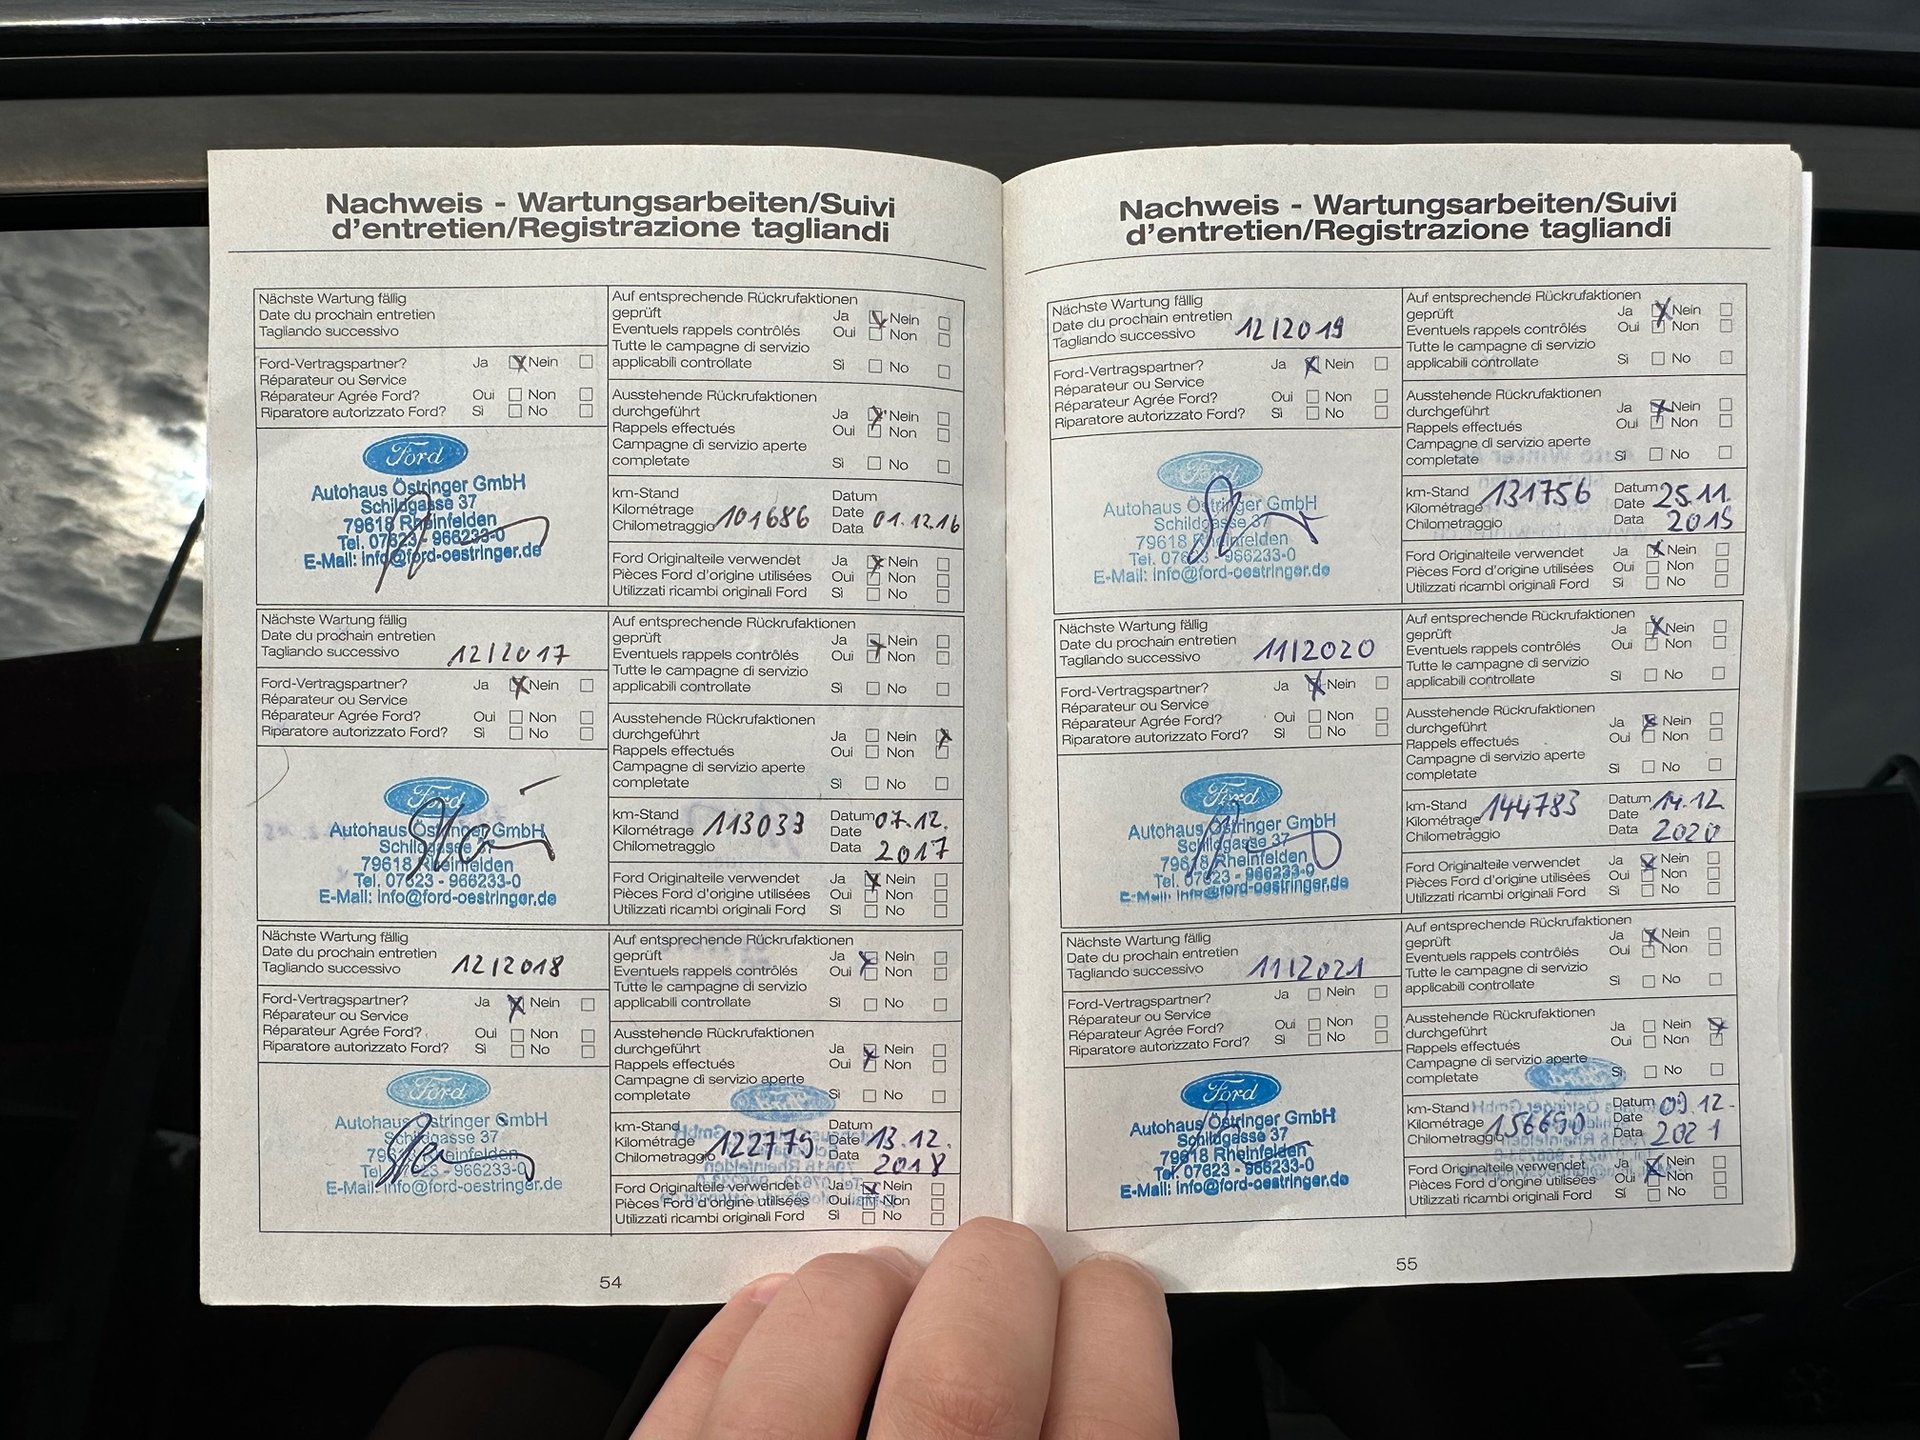 Nachweis - Wartungsarbeiten/Suivi
d'entretien/Registrazione tagliandi
Nächste Wartung fällig
Date du prochain entretien
Tagliando successivo
Ford-Vertragspartner? Ja Nein
Réparateur ou Service
Réparateur Agrée Ford? Oui Non
Riparatore autorizzato Ford? Sì No
Ford
Autohaus Östringer GmbH
Schildgasse 37
79618 Rheinfelden
Tel. 07623 - 966233-0
E-Mail: info@ford-oestringer.de
Auf entsprechende Rückrufaktionen
geprüft Ja Nein
Eventuels rappels contrôlés Oui Non
Tutte le campagne di servizio
applicabili controllate Sì No
Ausstehende Rückrufaktionen
durchgeführt Ja Nein
Rappels effectués Oui Non
Campagne di servizio aperte
completate Sì No
km-Stand Datum
Kilométrage 101686 Date
Chilometraggio Data 01.12.16
Ford Originalteile verwendet Ja Nein
Pièces Ford d'origine utilisées Oui Non
Utilizzati ricambi originali Ford Sì No
Nächste Wartung fällig
Date du prochain entretien
Tagliando successivo 12/2017
Ford-Vertragspartner? Ja Nein
Réparateur ou Service
Réparateur Agrée Ford? Oui Non
Riparatore autorizzato Ford? Sì No
Ford
Autohaus Östringer GmbH
Schildgasse 37
79618 Rheinfelden
Tel. 07623 - 966233-0
E-Mail: info@ford-oestringer.de
Auf entsprechende Rückrufaktionen
geprüft Ja Nein
Eventuels rappels contrôlés Oui Non
Tutte le campagne di servizio
applicabili controllate Sì No
Ausstehende Rückrufaktionen
durchgeführt Ja Nein
Rappels effectués Oui Non
Campagne di servizio aperte
completate Sì No
km-Stand Datum 07.12.
Kilométrage 113033 Date
Chilometraggio Data 2017
Ford Originalteile verwendet Ja Nein
Pièces Ford d'origine utilisées Oui Non
Utilizzati ricambi originali Ford Sì No
Nächste Wartung fällig
Date du prochain entretien
Tagliando successivo 12/2018
Ford-Vertragspartner? Ja Nein
Réparateur ou Service
Réparateur Agrée Ford? Oui Non
Riparatore autorizzato Ford? Sì No
Ford
Autohaus Östringer GmbH
Schildgasse 37
79618 Rheinfelden
Tel. 07623 - 966233-0
E-Mail: info@ford-oestringer.de
Auf entsprechende Rückrufaktionen
geprüft Ja Nein
Eventuels rappels contrôlés Oui Non
Tutte le campagne di servizio
applicabili controllate Sì No
Ausstehende Rückrufaktionen
durchgeführt Ja Nein
Rappels effectués Oui Non
Campagne di servizio aperte
completate Sì No
km-Stand Datum
Kilométrage 122775 Date 13.12.
Chilometraggio Data 2018
Ford Originalteile verwendet Ja Nein
Pièces Ford d'origine utilisées Oui Non
Utilizzati ricambi originali Ford Sì No
54
Nachweis - Wartungsarbeiten/Suivi
d'entretien/Registrazione tagliandi
Nächste Wartung fällig
Date du prochain entretien
Tagliando successivo 12/2019
Ford-Vertragspartner? Ja Nein
Réparateur ou Service
Réparateur Agrée Ford? Oui Non
Riparatore autorizzato Ford? Sì No
Ford
Autohaus Östringer GmbH
Schildgasse 37
79618 Rheinfelden
Tel. 07623 - 966233-0
E-Mail: info@ford-oestringer.de
Auf entsprechende Rückrufaktionen
geprüft Ja Nein
Eventuels rappels contrôlés Oui Non
Tutte le campagne di servizio
applicabili controllate Sì No
Ausstehende Rückrufaktionen
durchgeführt Ja Nein
Rappels effectués Oui Non
Campagne di servizio aperte
completate Sì No
km-Stand 131756 Datum 25.11.
Kilométrage Date
Chilometraggio Data 2019
Ford Originalteile verwendet Ja Nein
Pièces Ford d'origine utilisées Oui Non
Utilizzati ricambi originali Ford Sì No
Nächste Wartung fällig
Date du prochain entretien
Tagliando successivo 11/2020
Ford-Vertragspartner? Ja Nein
Réparateur ou Service
Réparateur Agrée Ford? Oui Non
Riparatore autorizzato Ford? Sì No
Ford
Autohaus Östringer GmbH
Schildgasse 37
79618 Rheinfelden
Tel. 07623 - 966233-0
E-Mail: info@ford-oestringer.de
Auf entsprechende Rückrufaktionen
geprüft Ja Nein
Eventuels rappels contrôlés Oui Non
Tutte le campagne di servizio
applicabili controllate Sì No
Ausstehende Rückrufaktionen
durchgeführt Ja Nein
Rappels effectués Oui Non
Campagne di servizio aperte
completate Sì No
km-Stand 144783 Datum 14.12
Kilométrage Date
Chilometraggio Data 2020
Ford Originalteile verwendet Ja Nein
Pièces Ford d'origine utilisées Oui Non
Utilizzati ricambi originali Ford Sì No
Nächste Wartung fällig
Date du prochain entretien
Tagliando successivo 11/2021
Ford-Vertragspartner? Ja Nein
Réparateur ou Service
Réparateur Agrée Ford? Oui Non
Riparatore autorizzato Ford? Sì No
Ford
Autohaus Östringer GmbH
Schildgasse 37
79618 Rheinfelden
Tel. 07623 - 966233-0
E-Mail: info@ford-oestringer.de
Auf entsprechende Rückrufaktionen
geprüft Ja Nein
Eventuels rappels contrôlés Oui Non
Tutte le campagne di servizio
applicabili controllate Sì No
Ausstehende Rückrufaktionen
durchgeführt Ja Nein
Rappels effectués Oui Non
Campagne di servizio aperte
completate Sì No
km-Stand Datum 09.12.
Kilométrage 156690 Date
Chilometraggio Data 2021
Ford Originalteile verwendet Ja Nein
Pièces Ford d'origine utilisées Oui Non
Utilizzati ricambi originali Ford Sì No
55